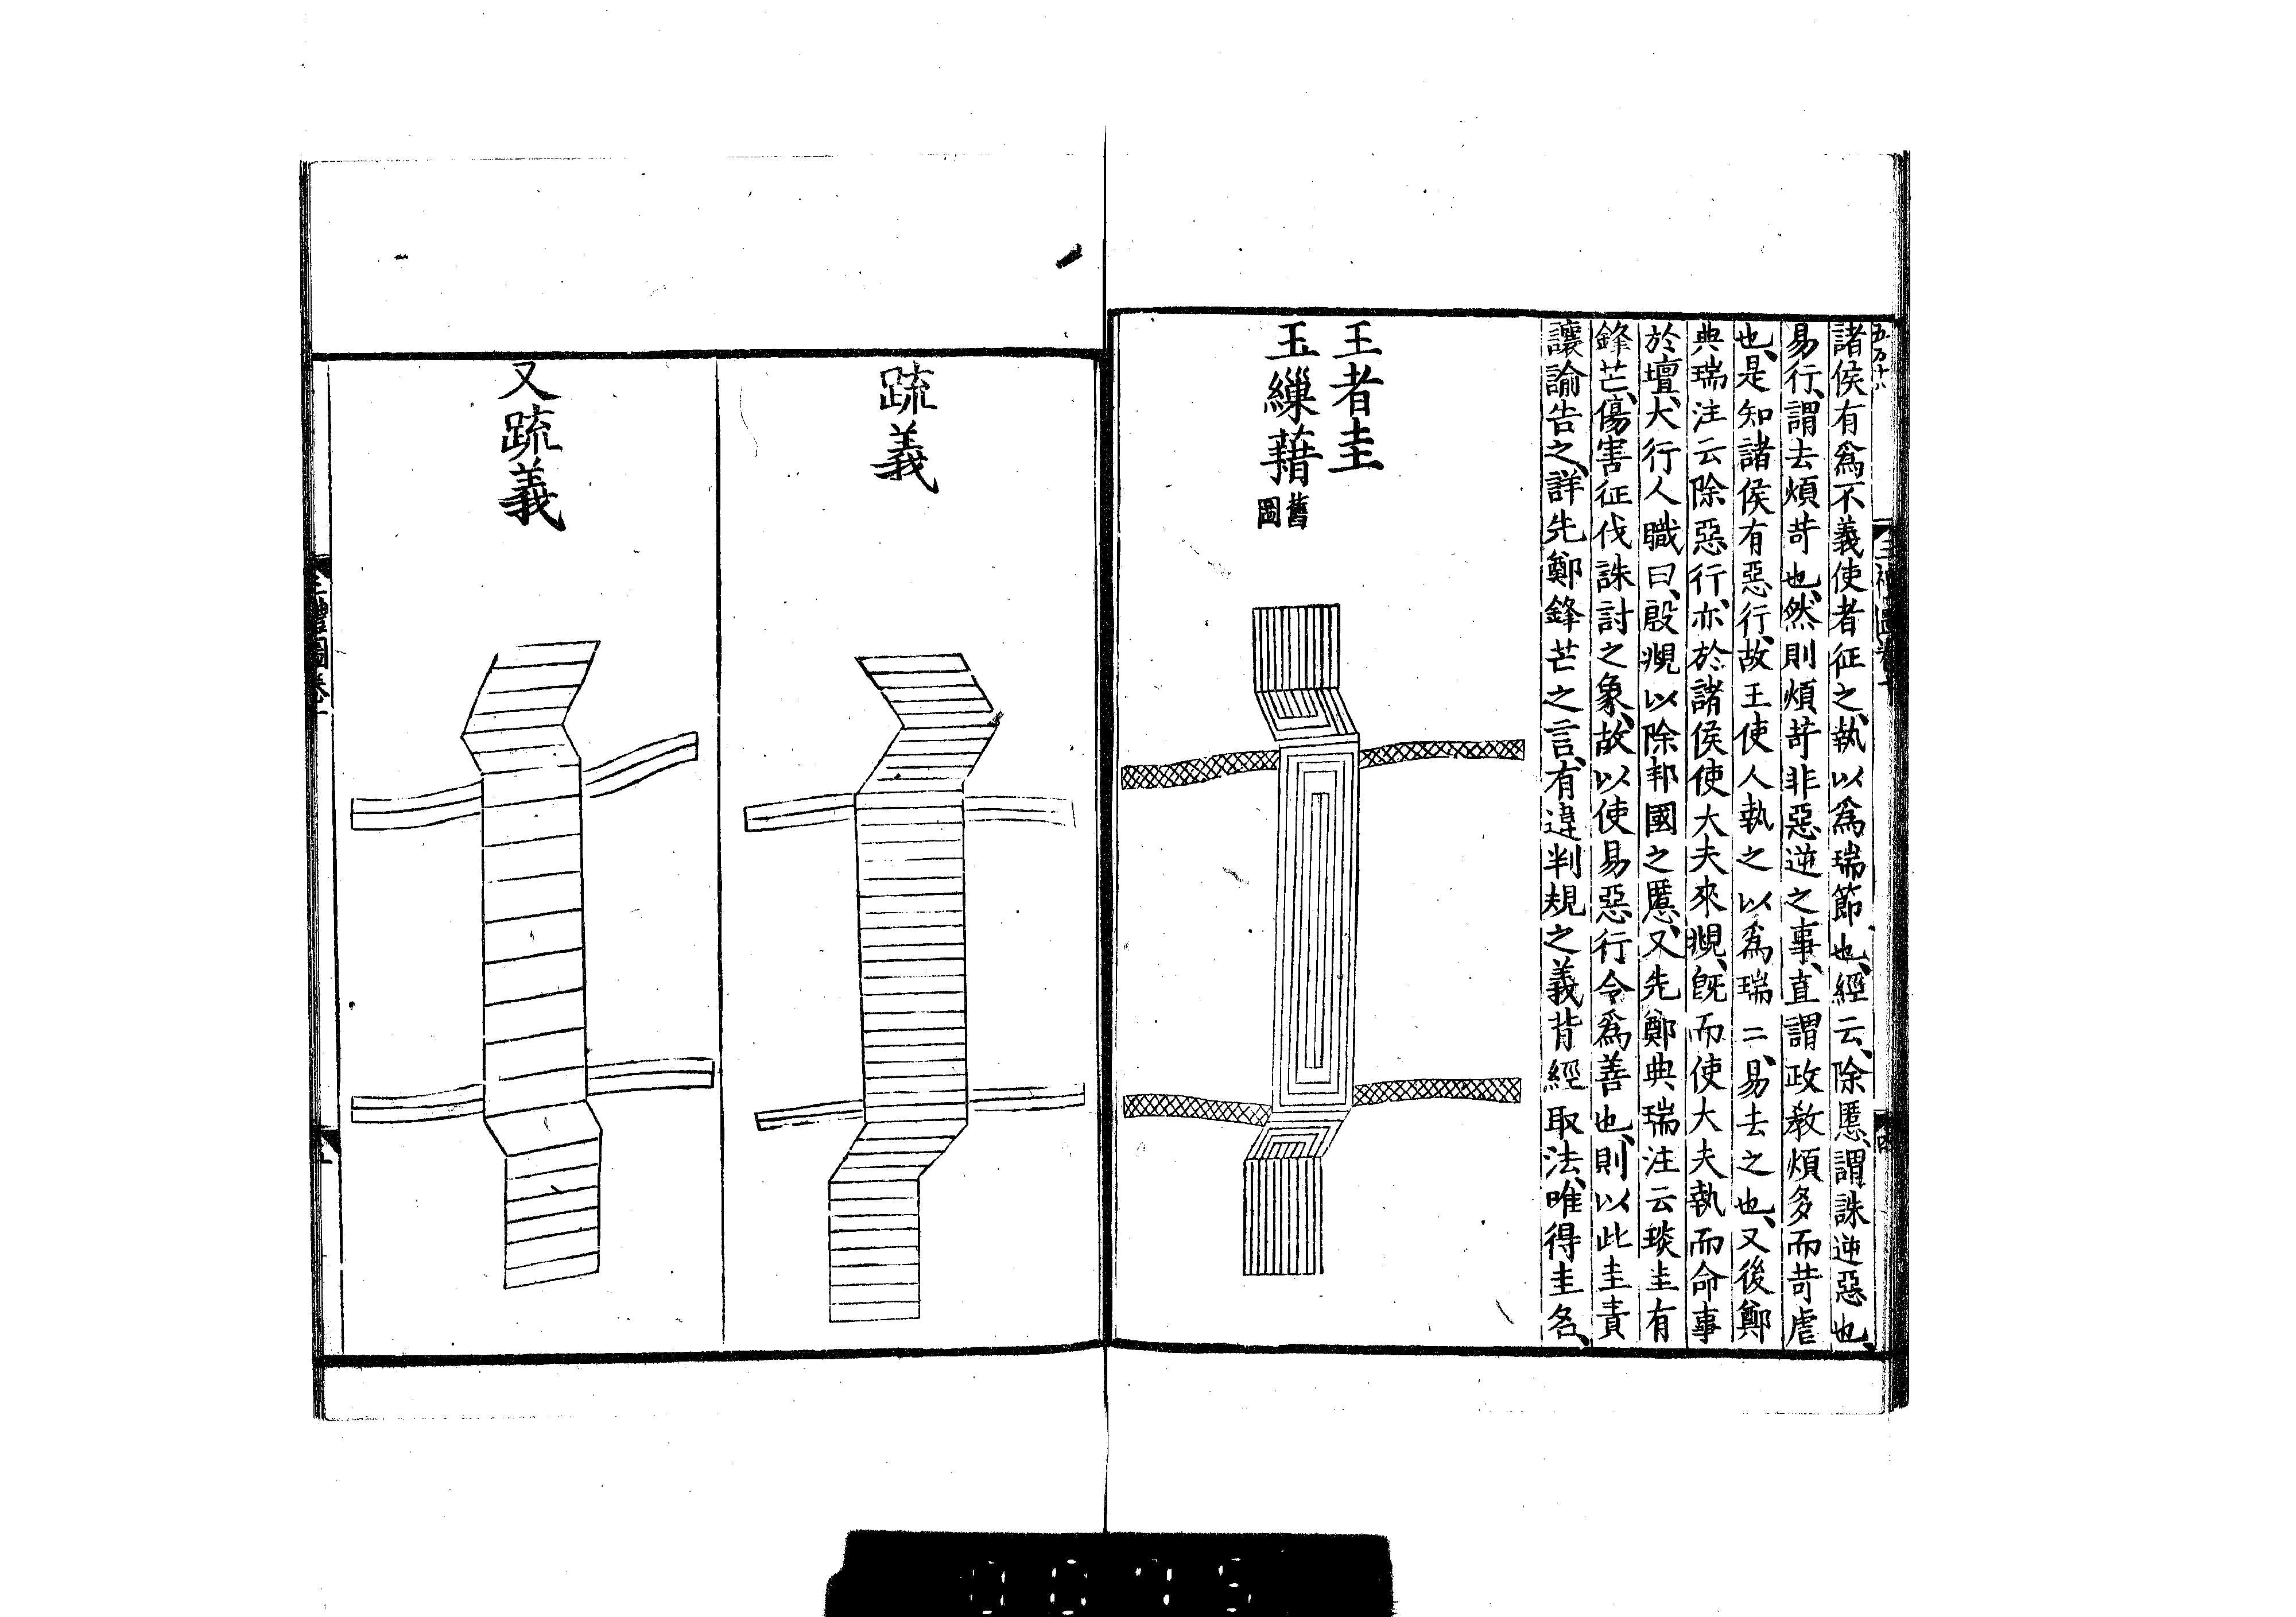 五万十八
諸侯有爲不義使者征之、執以爲瑞節也、經云、除慝、謂誅逆惡也、
易行、謂去煩苛也、然則煩苛非惡逆之事、直謂政教煩多而苛虐
也、是知諸侯有惡行、故王使人執之以爲瑞二、易去之也、又後鄭
典瑞注云除惡行、亦於諸侯使大夫來覜、旣而使大夫執而命事
於壇、大行人職曰、殷覜以除邦國之慝、又先鄭典瑞注云琰圭有
鋒芒、傷害征伐誅討之象、故以使易惡行令爲善也、則以此圭責
讓諭告之、詳先鄭鋒芒之言、有違判規之義背經取法、唯得圭名、
王者圭
玉繅藉
舊
圖
疏義
又疏義
三禮圖卷十